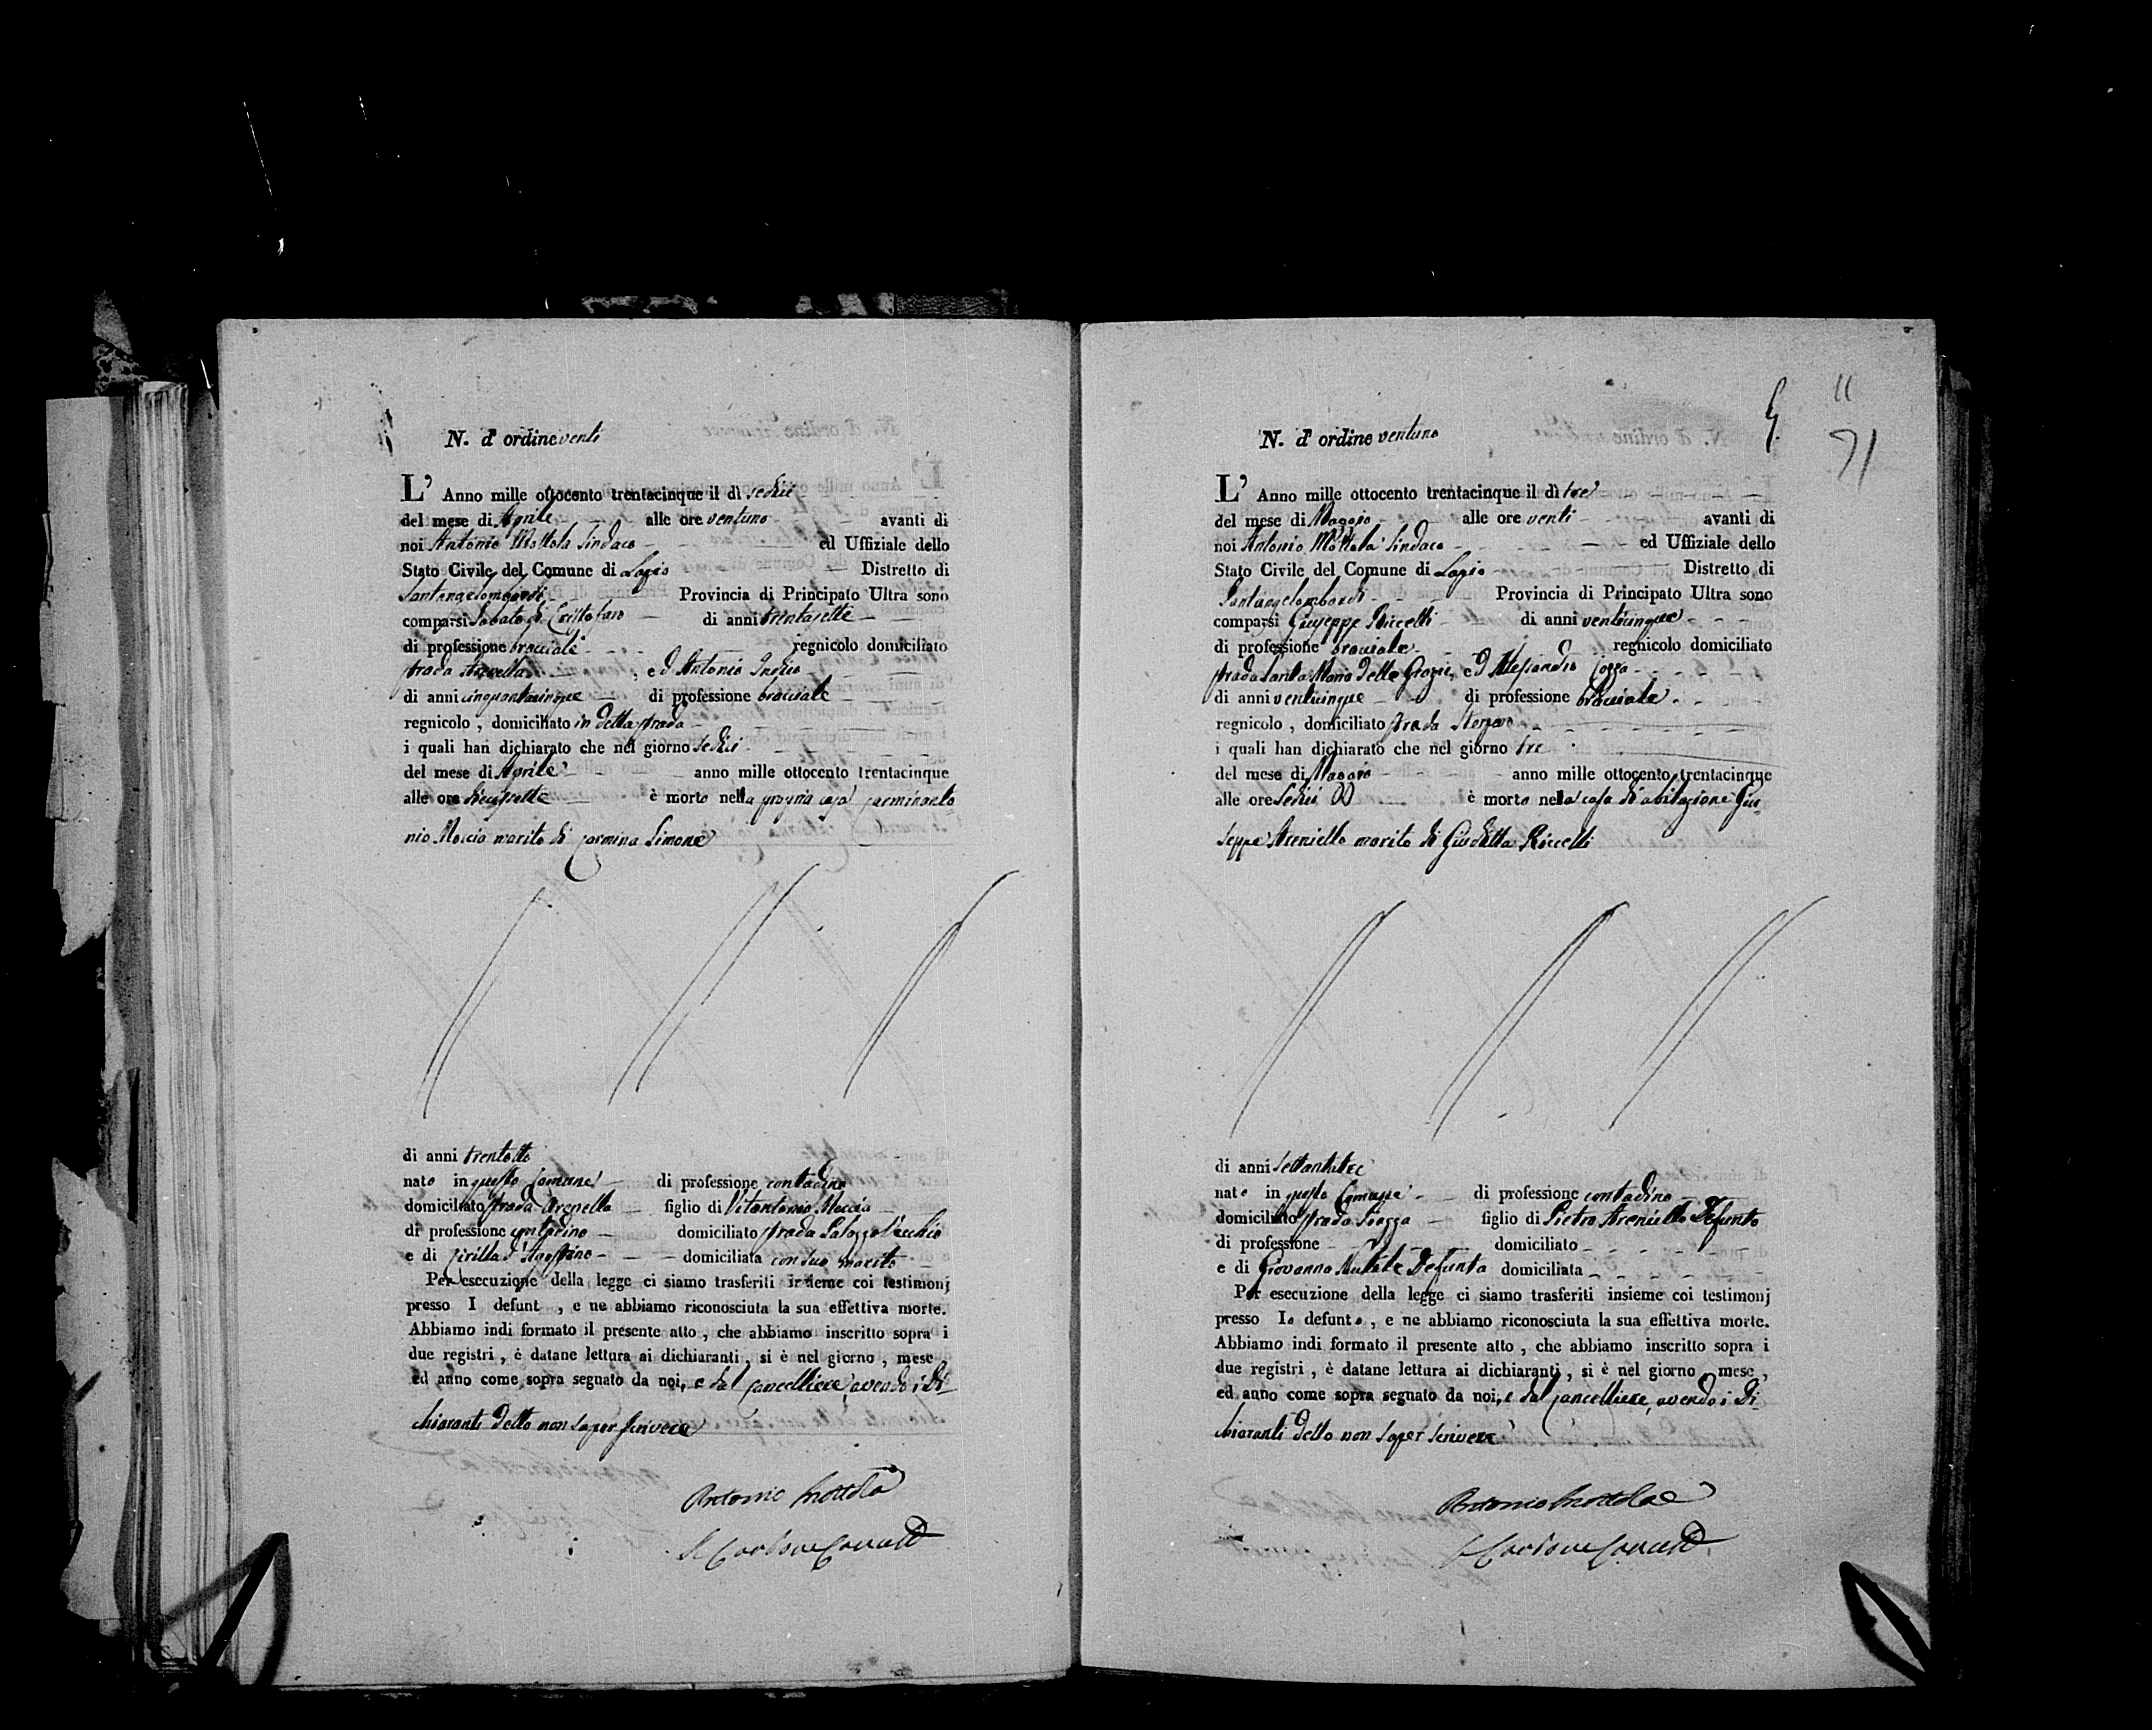 N. d' ordine venti
L' Anno mille ottocento trentacinque il dì sedici
del mese di Aprile alle ore ventuno avanti di
noi Antonio Mottola Sindaco ed Uffiziale dello
Stato Civile del Comune di Lapio Distretto di
Santangelombardi Provincia di Principato Ultra sono
comparsi Sabato di Cristofaro di anni trentasette
di professione bracciale regnicolo domiciliato
strada Arenella , e d'Antonio
di anni cinquantacinque di professione bracciale
regnicolo , domiciliato in detta strada
i quali han dichiarato che nel giorno sedici
del mese di Aprile anno mille ottocento trentacinque
alle ore diecisette è morto nella propria casa Carminanto
nio Moccia marito di Carmina Simone
di anni trentotto
nato in questo Comune di professione contadino
domiciliato strada Arenella figlio di Vitantonio Moccia
di professione contadino domiciliato strada Palazzo Vecchio
e di Cirilla d'Agostino domiciliata con suo marito
Per esecuzione della legge ci siamo trasferiti insieme coi testimonj
presso I defunt , e ne abbiamo riconosciuta la sua effettiva morte.
Abbiamo indi formato il presente atto , che abbiamo inscritto sopra i
due registri , è datane lettura ai dichiaranti , si è nel giorno , mese
ed anno come sopra segnato da noi, e dal Cancelliere, avendo i di
chiaranti detto non saper scrivere
Antonio Mottola
N. d' ordine ventuno
L' Anno mille ottocento trentacinque il dì tre
del mese di Maggio alle ore venti avanti di
noi Antonio Mottola Sindaco ed Uffiziale dello
Stato Civile del Comune di Lapio Distretto di
Santangelombardi Provincia di Principato Ultra sono
comparsi Giuseppe Riccelli di anni venticinque
di professione bracciale regnicolo domiciliato
strada Santa Maria delle Grazie, e d'Alesandro
di anni venticinque di professione bracciale
regnicolo , domiciliato strada
i quali han dichiarato che nel giorno tre
del mese di Maggio anno mille ottocento trentacinque
alle ore sedici è morto nella casa di abitazione Giu
seppe Areniello marito di Giuditta Riccelli
di anni settantatre
nato in questo Comune di professione contadino
domiciliato strada Piazza figlio di Pietro Areniello Defunto
di professione domiciliato
e di Giovanna Defunta domiciliata
Per esecuzione della legge ci siamo trasferiti insieme coi testimonj
presso Io defunto , e ne abbiamo riconosciuta la sua effettiva morte.
Abbiamo indi formato il presente atto , che abbiamo inscritto sopra i
due registri , è datane lettura ai dichiaranti , si è nel giorno , mese ,
ed anno come sopra segnato da noi, e dal Cancelliere, avendo i di
chiaranti detto non saper scrivere
Antonio Mottola
11
71